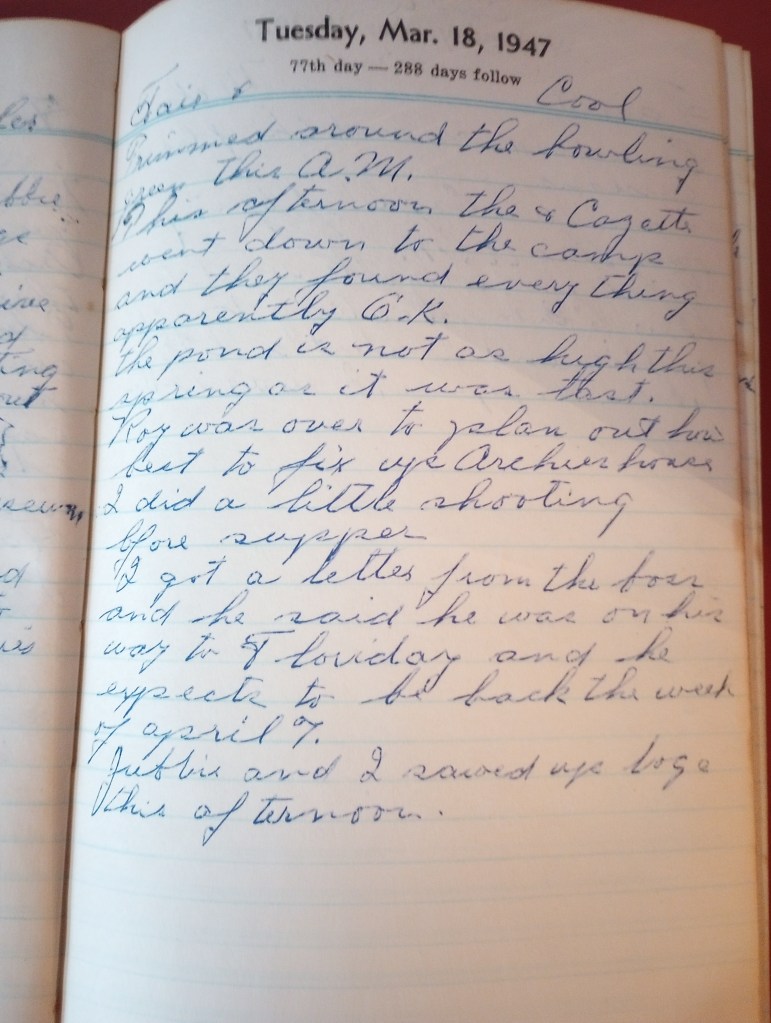 Tuesday, Mar. 18, 1947
77th day — 288 days follow
Fair & Cool
Trimmed around the bowling
green this A.M.
This afternoon the & Cazette
went down to the camp
and they found every thing
apparently O.K.
the pond is not as high this
spring as it was last.
Roy was over to plan out how
best to fix up Archies house
I did a little shooting
bfore supper
I got a letter from the boss
and he said he was on his
way to Floriday and he
expects to be back the week
of april 7.
Jubbie and I sawed up logs
this afternoon.